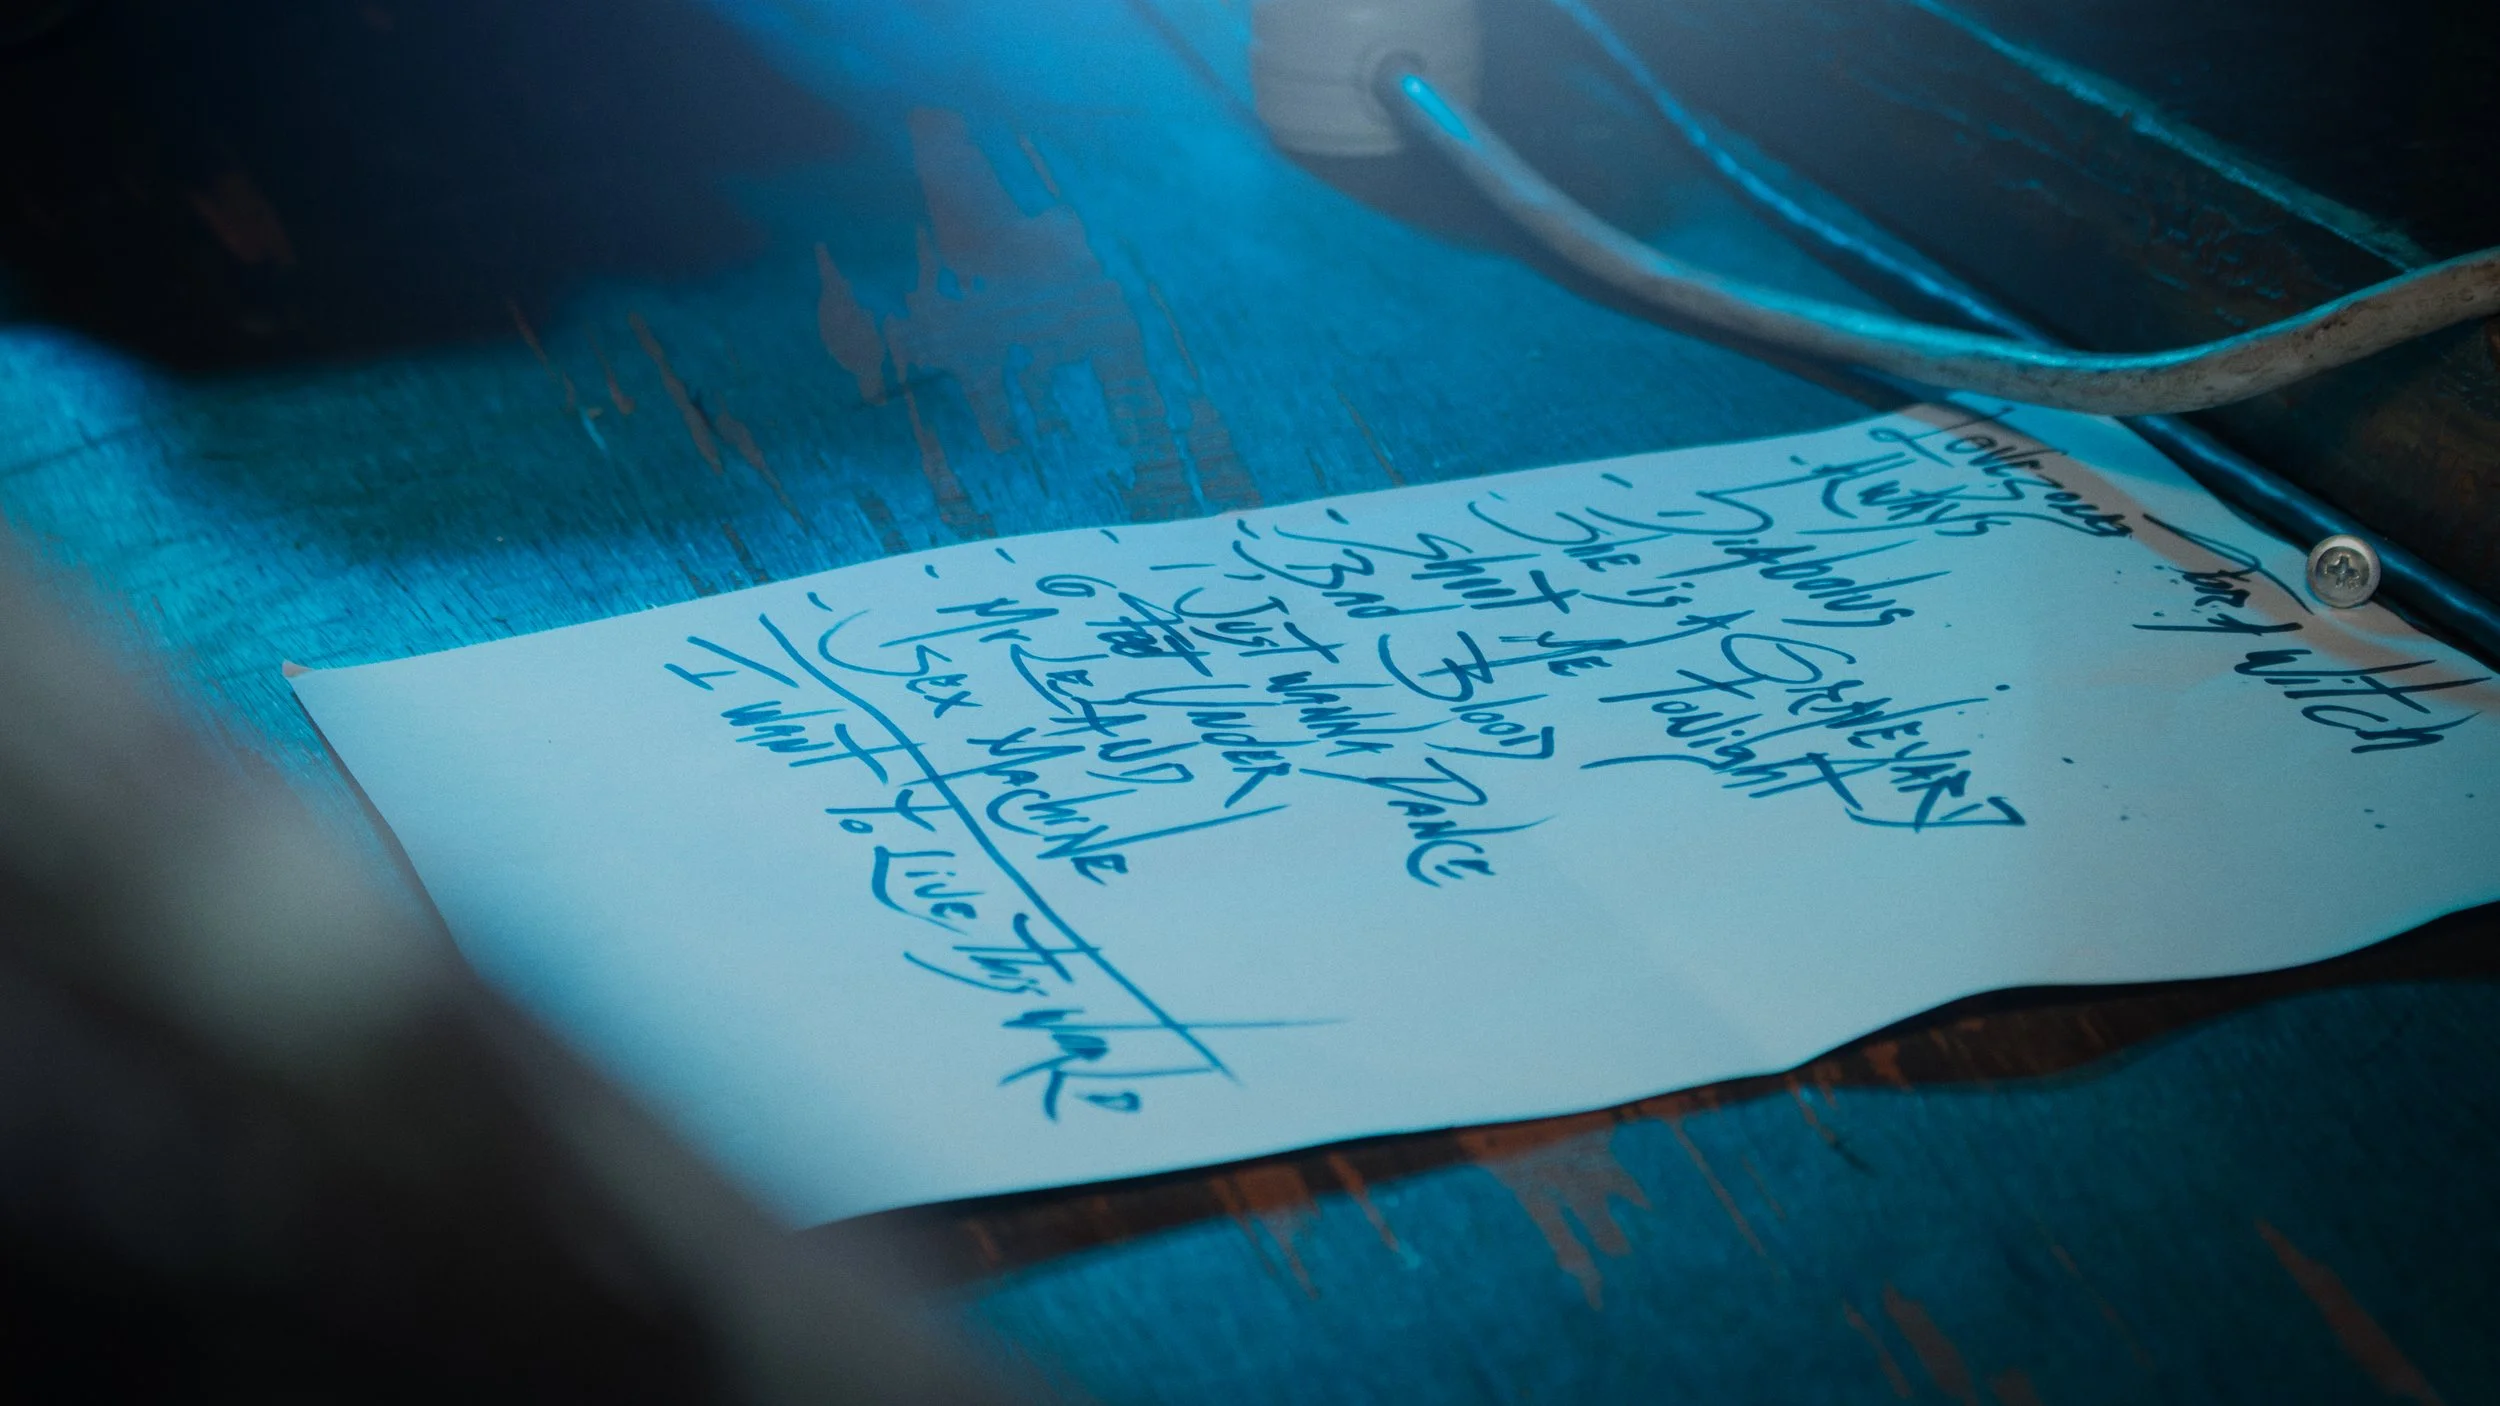 Lovesongs for A Witch
- Always
- Diabolus
- She is A Graveyard
- Shoot Me Tonight
- Bad Blood
- I Just Wanna Dance
- 6 Feet Under
- Mr Sexx Machine
I Want to Live This World